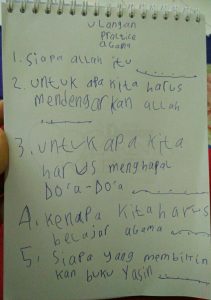 ulangan
practice
agama
1. Siapa allah itu
2. untuk apa kita harus
mendengarkan allah
3. untuk apa kita
harus menghapal
Do'a-Do'a
4. kenapa kita harus
belajar agama
5. Siapa yang membikin
kan buku yasin